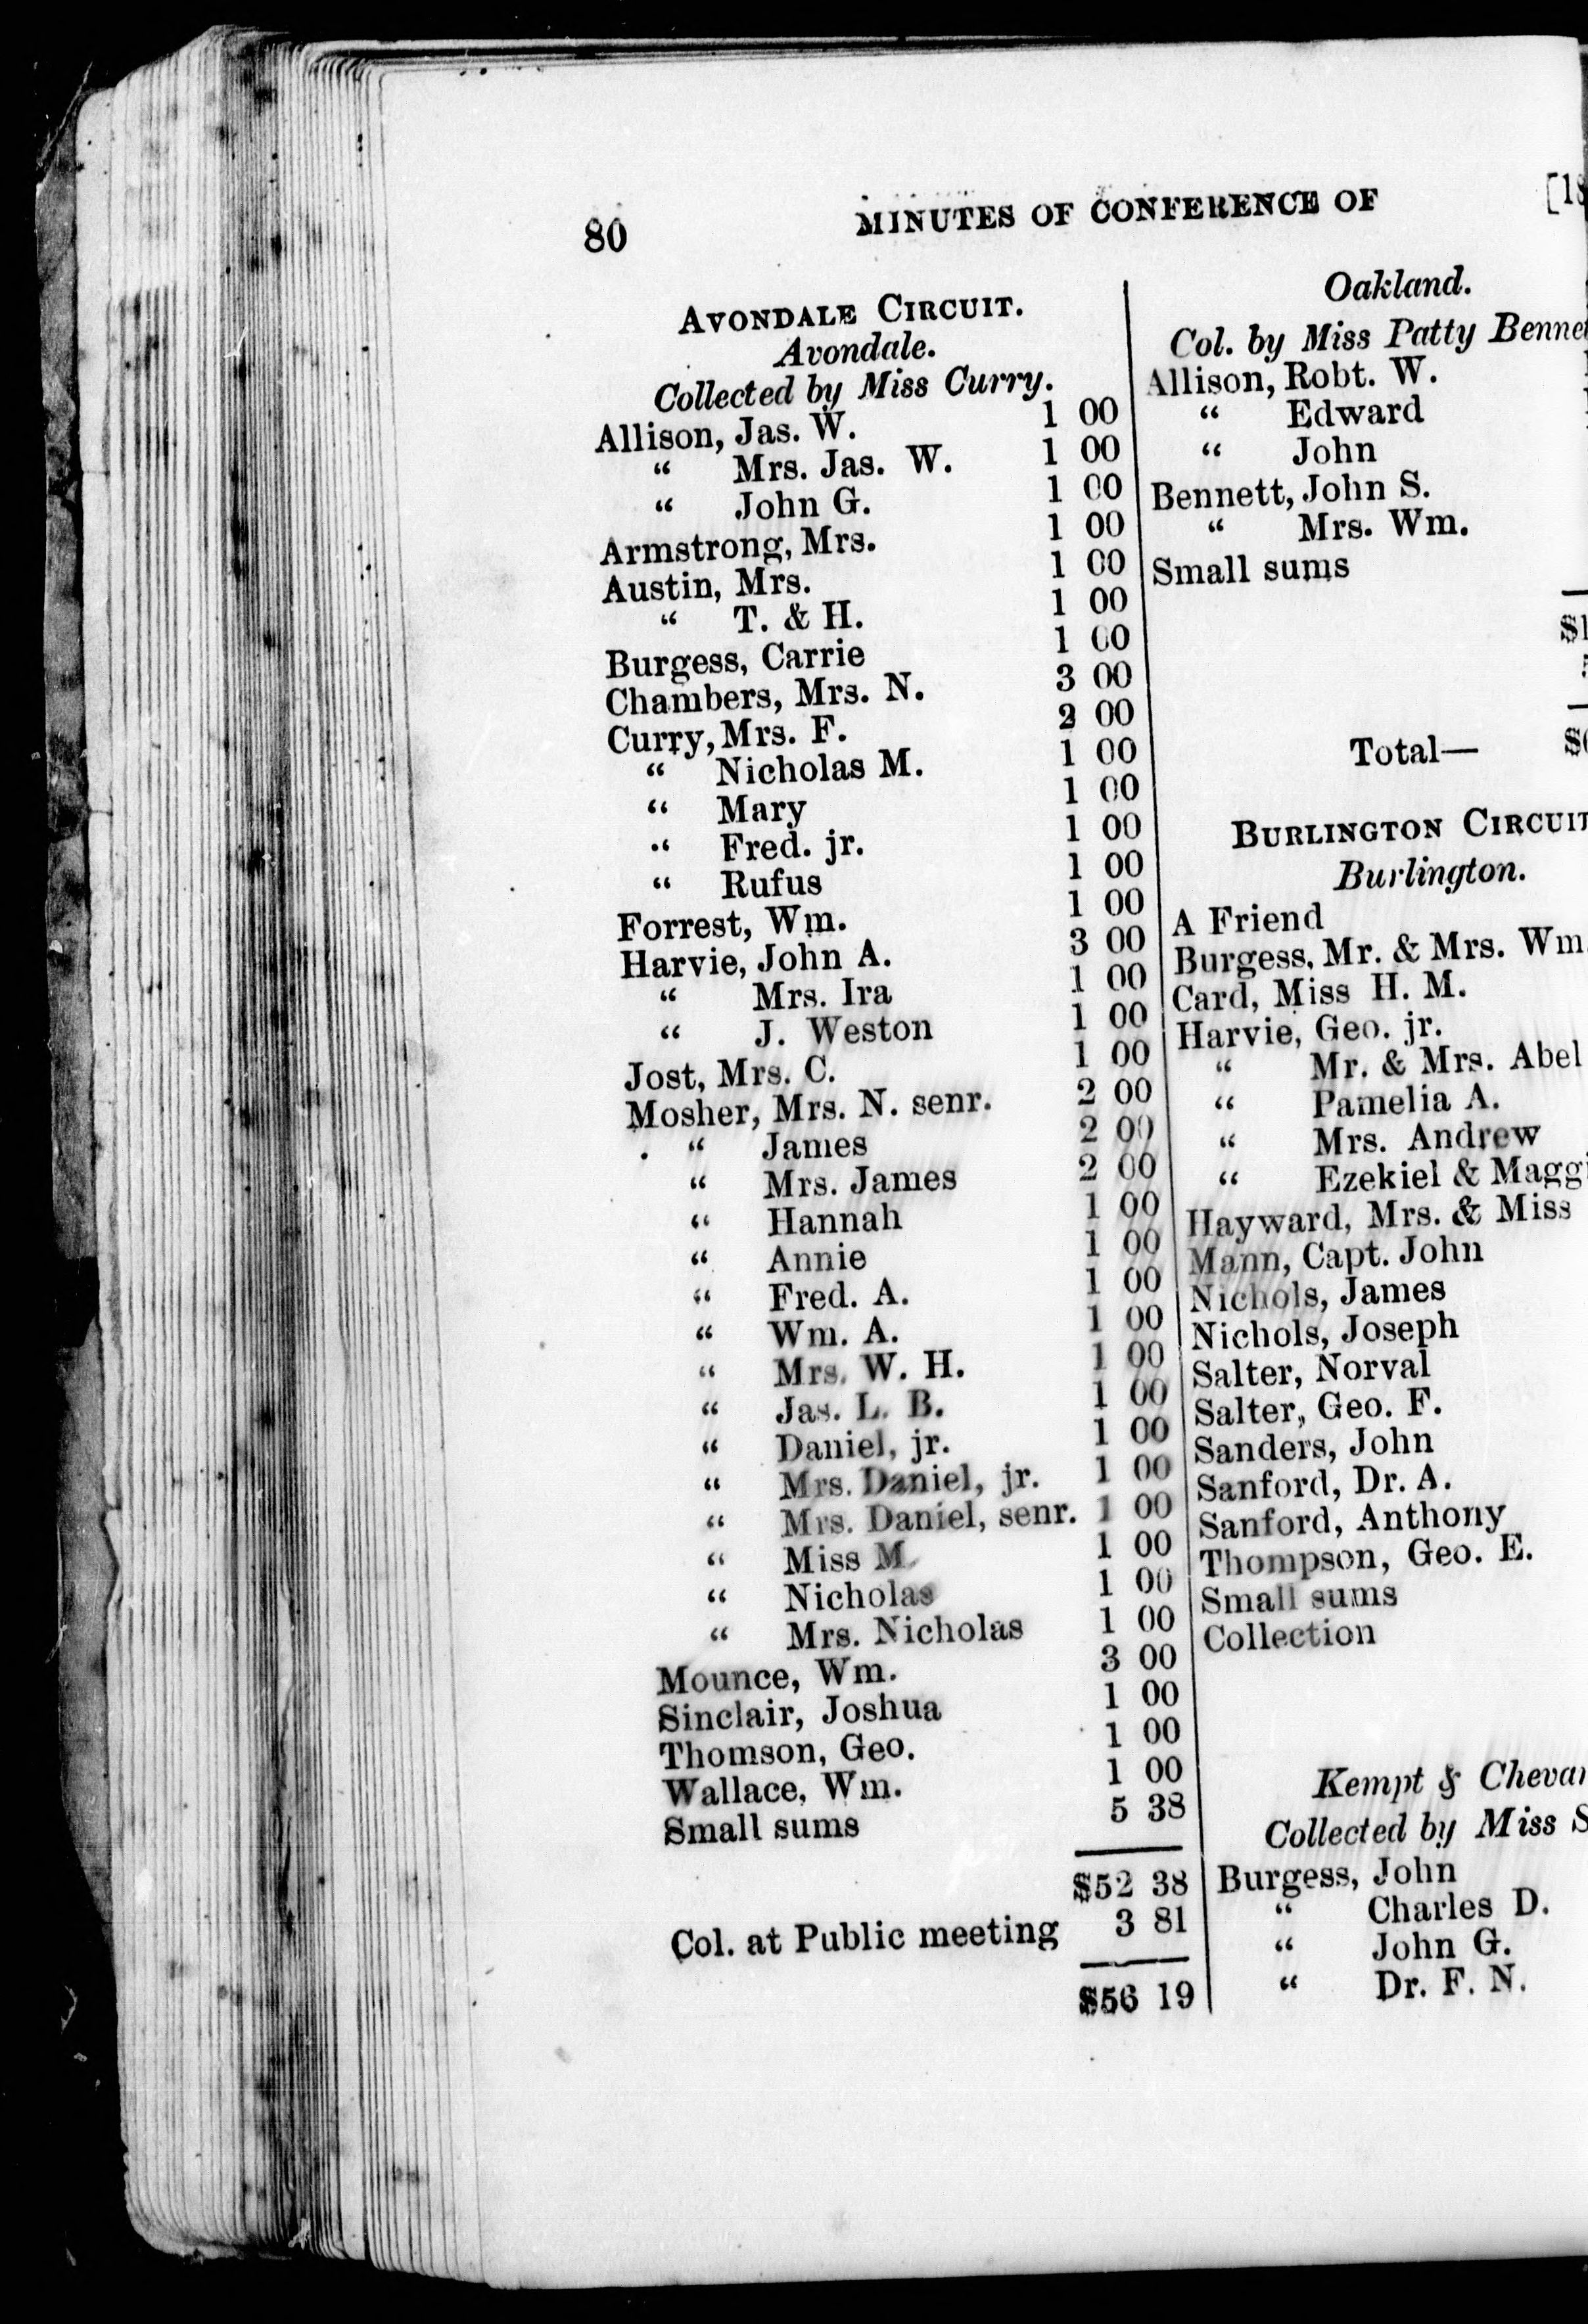 80 MINUTES OF CONFERENCE OF [18
AVONDALE CIRCUIT.
Avondale.
Collected by Miss Curry.
Allison, Jas. W. 1 00
“ Mrs. Jas. W. 1 00
“ John G. 1 00
Armstrong, Mrs. 1 00
Austin, Mrs. 1 00
“ T. & H. 1 00
Burgess, Carrie 1 00
Chambers, Mrs. N. 3 00
Curry, Mrs. F. 2 00
“ Nicholas M. 1 00
“ Mary 1 00
“ Fred. jr. 1 00
“ Rufus 1 00
Forrest, Wm. 1 00
Harvie, John A. 3 00
“ Mrs. Ira 1 00
“ J. Weston 1 00
Jost, Mrs. C. 1 00
Mosher, Mrs. N. senr. 2 00
“ James 2 00
“ Mrs. James 2 00
“ Hannah 1 00
“ Annie 1 00
“ Fred. A. 1 00
“ Wm. A. 1 00
“ Mrs. W. H. 1 00
“ Jas. L. B. 1 00
“ Daniel, jr. 1 00
“ Mrs. Daniel, jr. 1 00
“ Mrs. Daniel, senr. 1 00
“ Miss M. 1 00
“ Nicholas 1 00
“ Mrs. Nicholas 1 00
Mounce, Wm. 3 00
Sinclair, Joshua 1 00
Thomson, Geo. 1 00
Wallace, Wm. 1 00
Small sums 5 38
$52 38
Col. at Public meeting 3 81
$56 19
Oakland.
Col. by Miss Patty Benne
Allison, Robt. W.
“ Edward
“ John
Bennett, John S.
“ Mrs. Wm.
Small sums
$1
Total— $
BURLINGTON CIRCUIT
Burlington.
A Friend
Burgess, Mr. & Mrs. Wm.
Card, Miss H. M.
Harvie, Geo. jr.
“ Mr. & Mrs. Abel
“ Pamelia A.
“ Mrs. Andrew
“ Ezekiel & Maggi
Hayward, Mrs. & Miss
Mann, Capt. John
Nichols, James
Nichols, Joseph
Salter, Norval
Salter, Geo. F.
Sanders, John
Sanford, Dr. A.
Sanford, Anthony
Thompson, Geo. E.
Small sums
Collection
Kempt & Chevar
Collected by Miss S
Burgess, John
“ Charles D.
“ John G.
“ Dr. F. N.